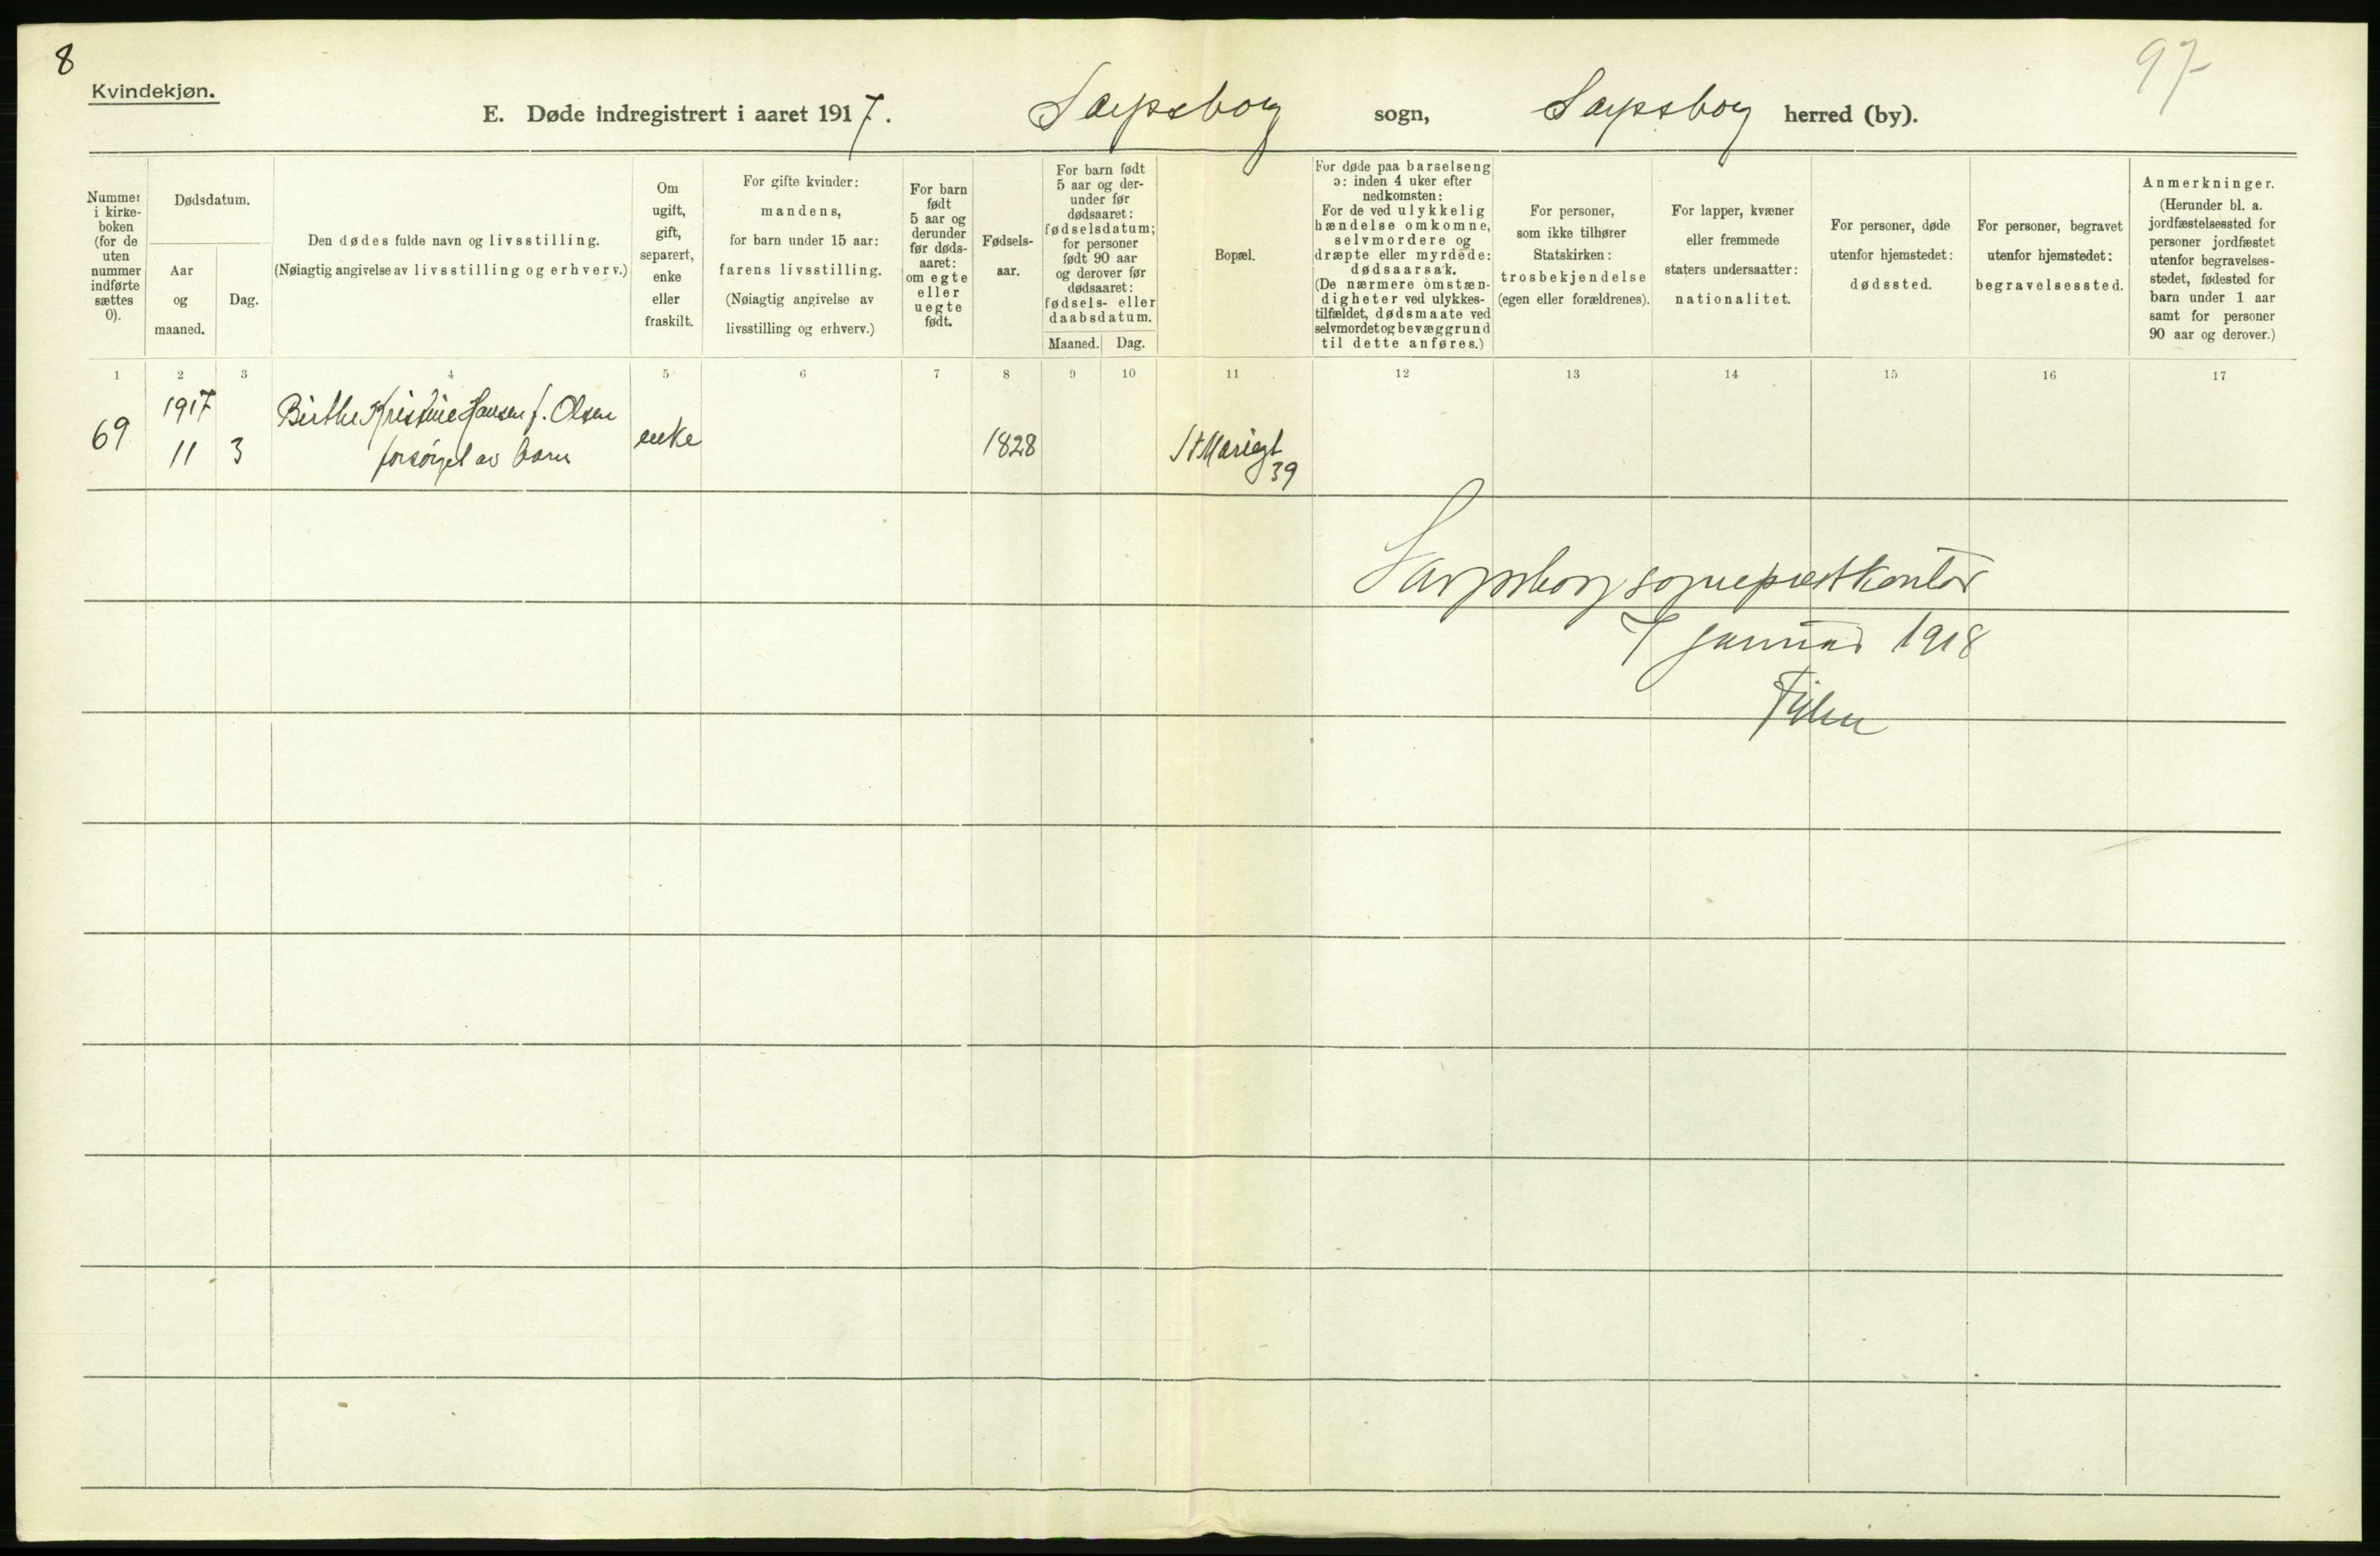 8
97
Kvindekjøn.
E. Døde indregistrert i aaret 1917. Sarpsborg sogn, Sarpsborg herred (by).
Nummer
i kirke-
boken
(for de
uten
nummer
indførte
sættes
0).
Dødsdatum.
Aar
og
maaned.
Dag.
Den dødes fulde navn og livsstilling.
(Nøiagtig angivelse av livsstilling og erhverv.)
Om
ugift,
gift,
separert,
enke
eller
fraskilt.
For gifte kvinder:
mandens,
for barn under 15 aar:
farens livsstilling.
(Nøiagtig angivelse av
livsstilling og erhverv.)
For barn
født
5 aar og
derunder
før døds-
aaret:
om egte
eller
uegte
født.
Fødsels-
aar.
For barn født
5 aar og der-
under før
dødsaaret:
fødselsdatum;
for personer
født 90 aar
og derover før
dødsaaret:
fødsels- eller
daabsdatum.
Maaned. Dag.
Bopæl.
For døde paa barselseng
ɔ: inden 4 uker efter
nedkomsten:
For de ved ulykkelig
hændelse omkomne,
selvmordere og
dræpte eller myrdede:
dødsaarsak.
(De nærmere omstæn-
digheter ved ulykkes-
tilfældet, dødsmaate ved
selvmordet og bevæggrund
til dette anføres.)
For personer,
som ikke tilhører
Statskirken:
trosbekjendelse
(egen eller forældrenes).
For lapper, kvæner
eller fremmede
staters undersaatter:
nationalitet.
For personer, døde
utenfor hjemstedet:
dødssted.
For personer, begravet
utenfor hjemstedet:
begravelsessted.
Anmerkninger.
(Herunder bl. a.
jordfæstelsessted for
personer jordfæstet
utenfor begravelses-
stedet, fødested for
barn under 1 aar
samt for personer
90 aar og derover.)
1 2 3 4 5 6 7 8 9 10 11 12 13 14 15 16 17
1917 Birthe Kristine Hansen f. Olsen
69 11 3 forsørget av barn enke 1828 St Mariegt
39
Sarpsborg sogneprestkontor
7 januar 1918